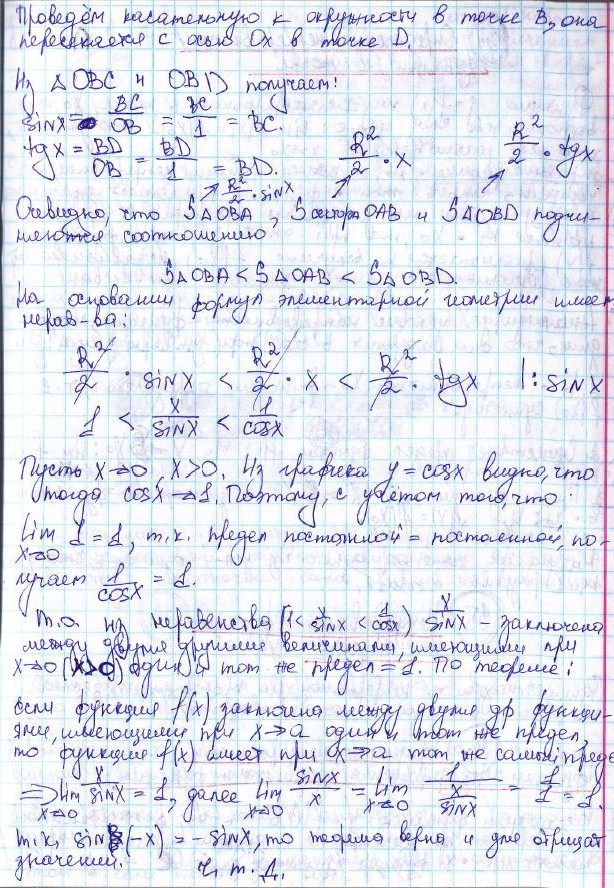 Проведём касательную к окружности в точке B, она
пересекается с осью Ox в точке D.
Из △OBC и OBD получаем:
sinx = BC/OB = BC/1 = BC.
tgx = BD/OB = BD/1 = BD.
R²/2 · x
R²/2 · tgx
R²/2 · sinx
Очевидно, что S△OBA, Sсектора OAB и S△OBD подчи-
няются соотношению
S△OBA < S△OAB < S△OBD.
На основании формул элементарной геометрии имеем
нерав-ва:
R²/2 · sinx < R²/2 · x < R²/2 · tgx |: sinx
1 < x/sinx < 1/cosx
Пусть x→0, x>0. Из графика y = cosx видно, что
тогда cosx→1. Поэтому, с учётом того, что
lim x→0 1 = 1, т.к. предел постоянной = постоянной, по-
лучаем 1/cosx = 1.
т.о. из неравенства (1 < x/sinx < 1/cosx) x/sinx - заключена
между двумя другими величинами, имеющими при
x→0 (x>0) один и тот же предел = 1. По теореме:
если функция f(x) заключена между двумя др функци-
ями, имеющими при x→a один и тот же предел,
то функция f(x) имеет при x→a тот же самый преде
⇒ lim x→0 x/sinx = 1, далее lim x→0 sinx/x = lim x→0 1/(x/sinx) = 1/1 = 1.
т.к. sin(-x) = -sinx, то теорема верна и для отрицат
значений.
ч.т.д.